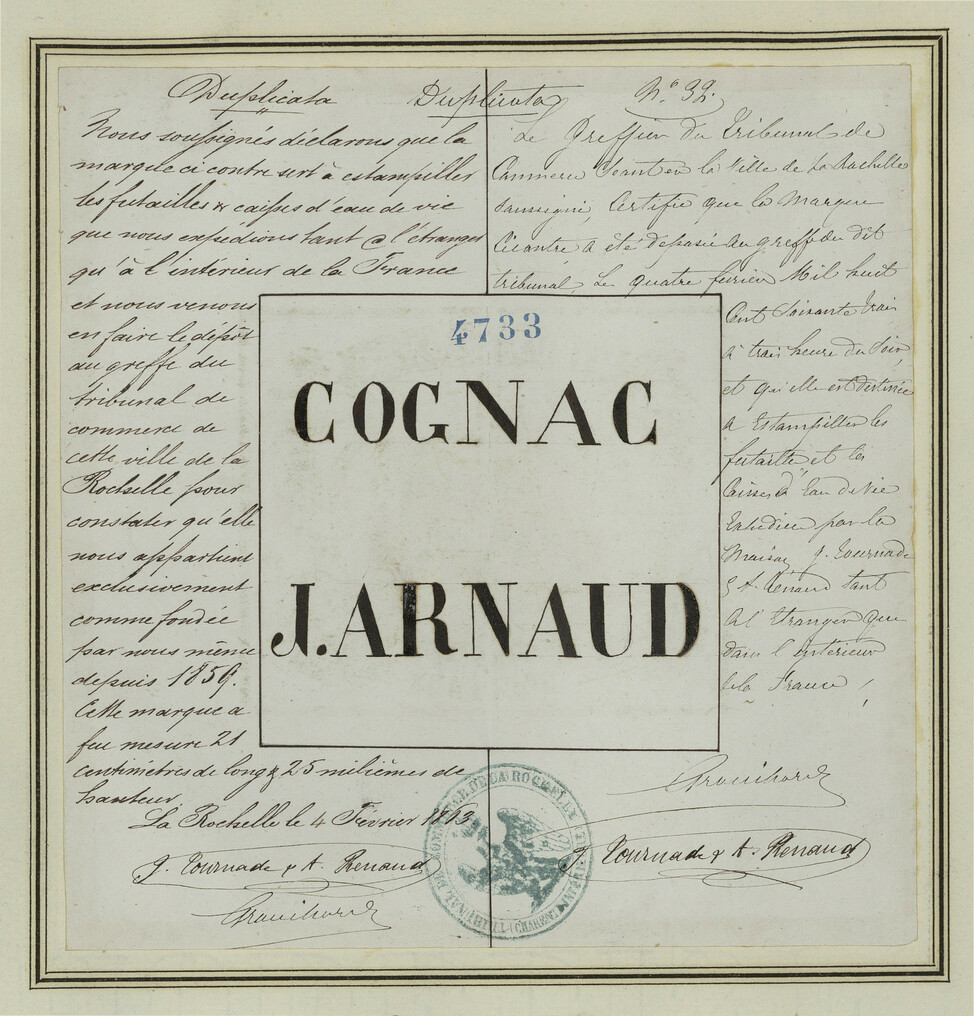 Duplicata
Nous soussignés déclarons que la
marque ci contre sert à estampiller
les futailles & caisses d'eau de vie
que nous expédions tant à l'étranger
qu'à l'intérieur de la France
et nous venons
en faire le dépôt
au greffe du
tribunal de
commerce de
cette ville de la
Rochelle pour
constater qu'elle
nous appartient
exclusivement
comme fondée
par nous même
depuis 1859.
Cette marque a
feu mesure 21
centimètres de long & 25 milièmes de
hauteur.
La Rochelle le 4 Février 1863
J. Tournade & A. Renaud
Duplicata
N° 32.
Le Greffier du Tribunal de
Commerce Séant en la Ville de La Rochelle
Soussigné, Certifie que la Marque
Cicontre a été déposée au greffe du dit
tribunal, Le quatre février Mil huit
Cent Soixante trois
à trois heure du Soir,
et qu'elle est destinée
a Estampiller les
futaille et les
Caisses d'Eau de Vie
Expédiée par la
Maison J. Tournade
& A. Renaud tant
à l'Etranger que
dans l'intérieur
de la France
J. Tournade & A. Renaud
4733
COGNAC
J. ARNAUD
TRIBUNAL DE COMMERCE DE LA ROCHELLE